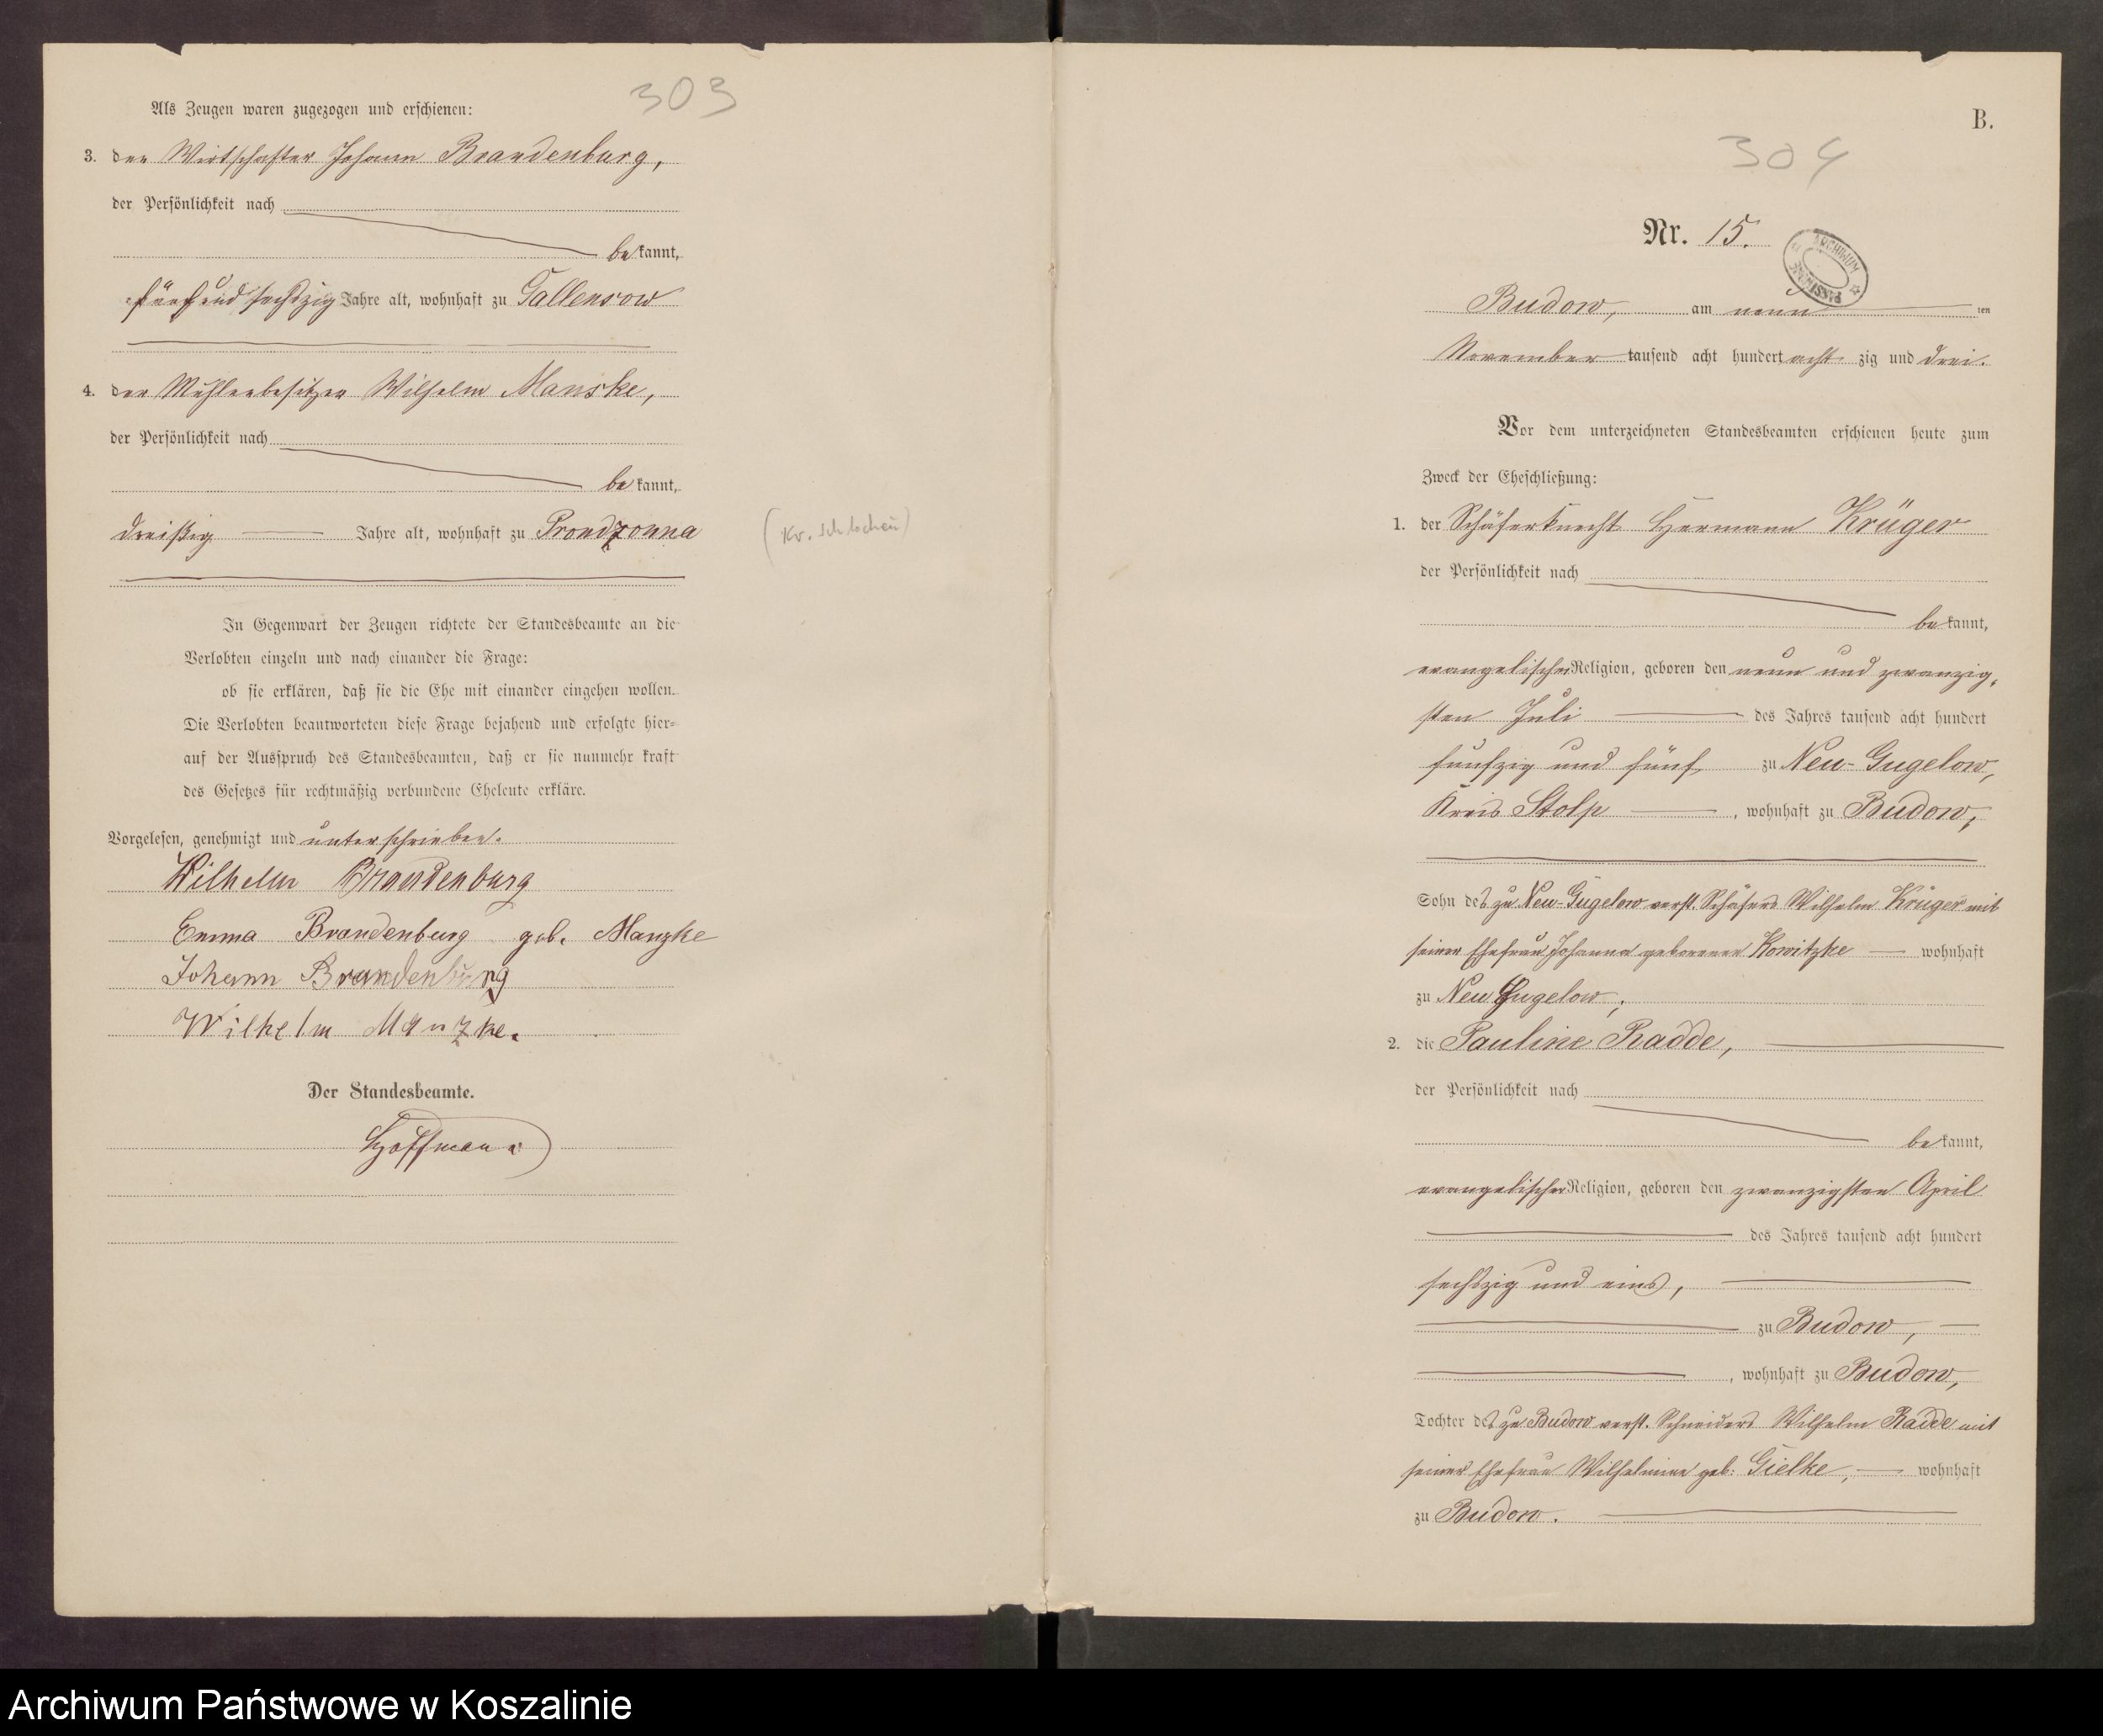 303
Als Zeugen waren zugezogen und erschienen:
3. der Wirtschafter Johann Brandenburg,
der Persönlichkeit nach
be kannt,
fünf und sechszig Jahre alt, wohnhaft zu Gallensow
4. der Mühlenbesitzer Wilhelm Manske,
der Persönlichkeit nach
be kannt,
dreißig Jahre alt, wohnhaft zu Prondzonna
(Kr. Schlochau)
In Gegenwart der Zeugen richtete der Standesbeamte an die
Verlobten einzeln und nach einander die Frage:
ob sie erklären, daß sie die Ehe mit einander eingehen wollen.
Die Verlobten beantworteten diese Frage bejahend und erfolgte hier=
auf der Ausspruch des Standesbeamten, daß er sie nunmehr kraft
des Gesetzes für rechtmäßig verbundene Eheleute erkläre.
Vorgelesen, genehmigt und unterschrieben.
Wilhelm Brandenburg
Emma Brandenburg geb. Manzke
Johann Brandenburg
Wilhelm Manzke.
Der Standesbeamte.
Hoffmann
B.
304
Nr. 15.
ARCHIWUM
Budow, am neun ten
November tausend acht hundert acht zig und drei.
Vor dem unterzeichneten Standesbeamten erschienen heute zum
Zweck der Eheschließung:
1. der Schäferknecht Hermann Krüger
der Persönlichkeit nach
be kannt,
evangelischer Religion, geboren den neun und zwanzig-
sten Juli des Jahres tausend acht hundert
fünfzig und fünf zu Neu-Gugelow,
Kreis Stolp, wohnhaft zu Budow,
Sohn des zu Neu-Gugelow verst. Schäfers Wilhelm Krüger mit
seiner Ehefrau Johanna geborenen Kowitzke wohnhaft
zu Neu Gugelow;
2. die Pauline Radde,
der Persönlichkeit nach
be kannt,
evangelischer Religion, geboren den zwanzigsten April
des Jahres tausend acht hundert
sechszig und eins,
zu Budow,
, wohnhaft zu Budow,
Tochter des zu Budow verst. Schneiders Wilhelm Radde mit
seiner Ehefrau Wilhelmine geb. Gielke, wohnhaft
zu Budow.
Archiwum Państwowe w Koszalinie